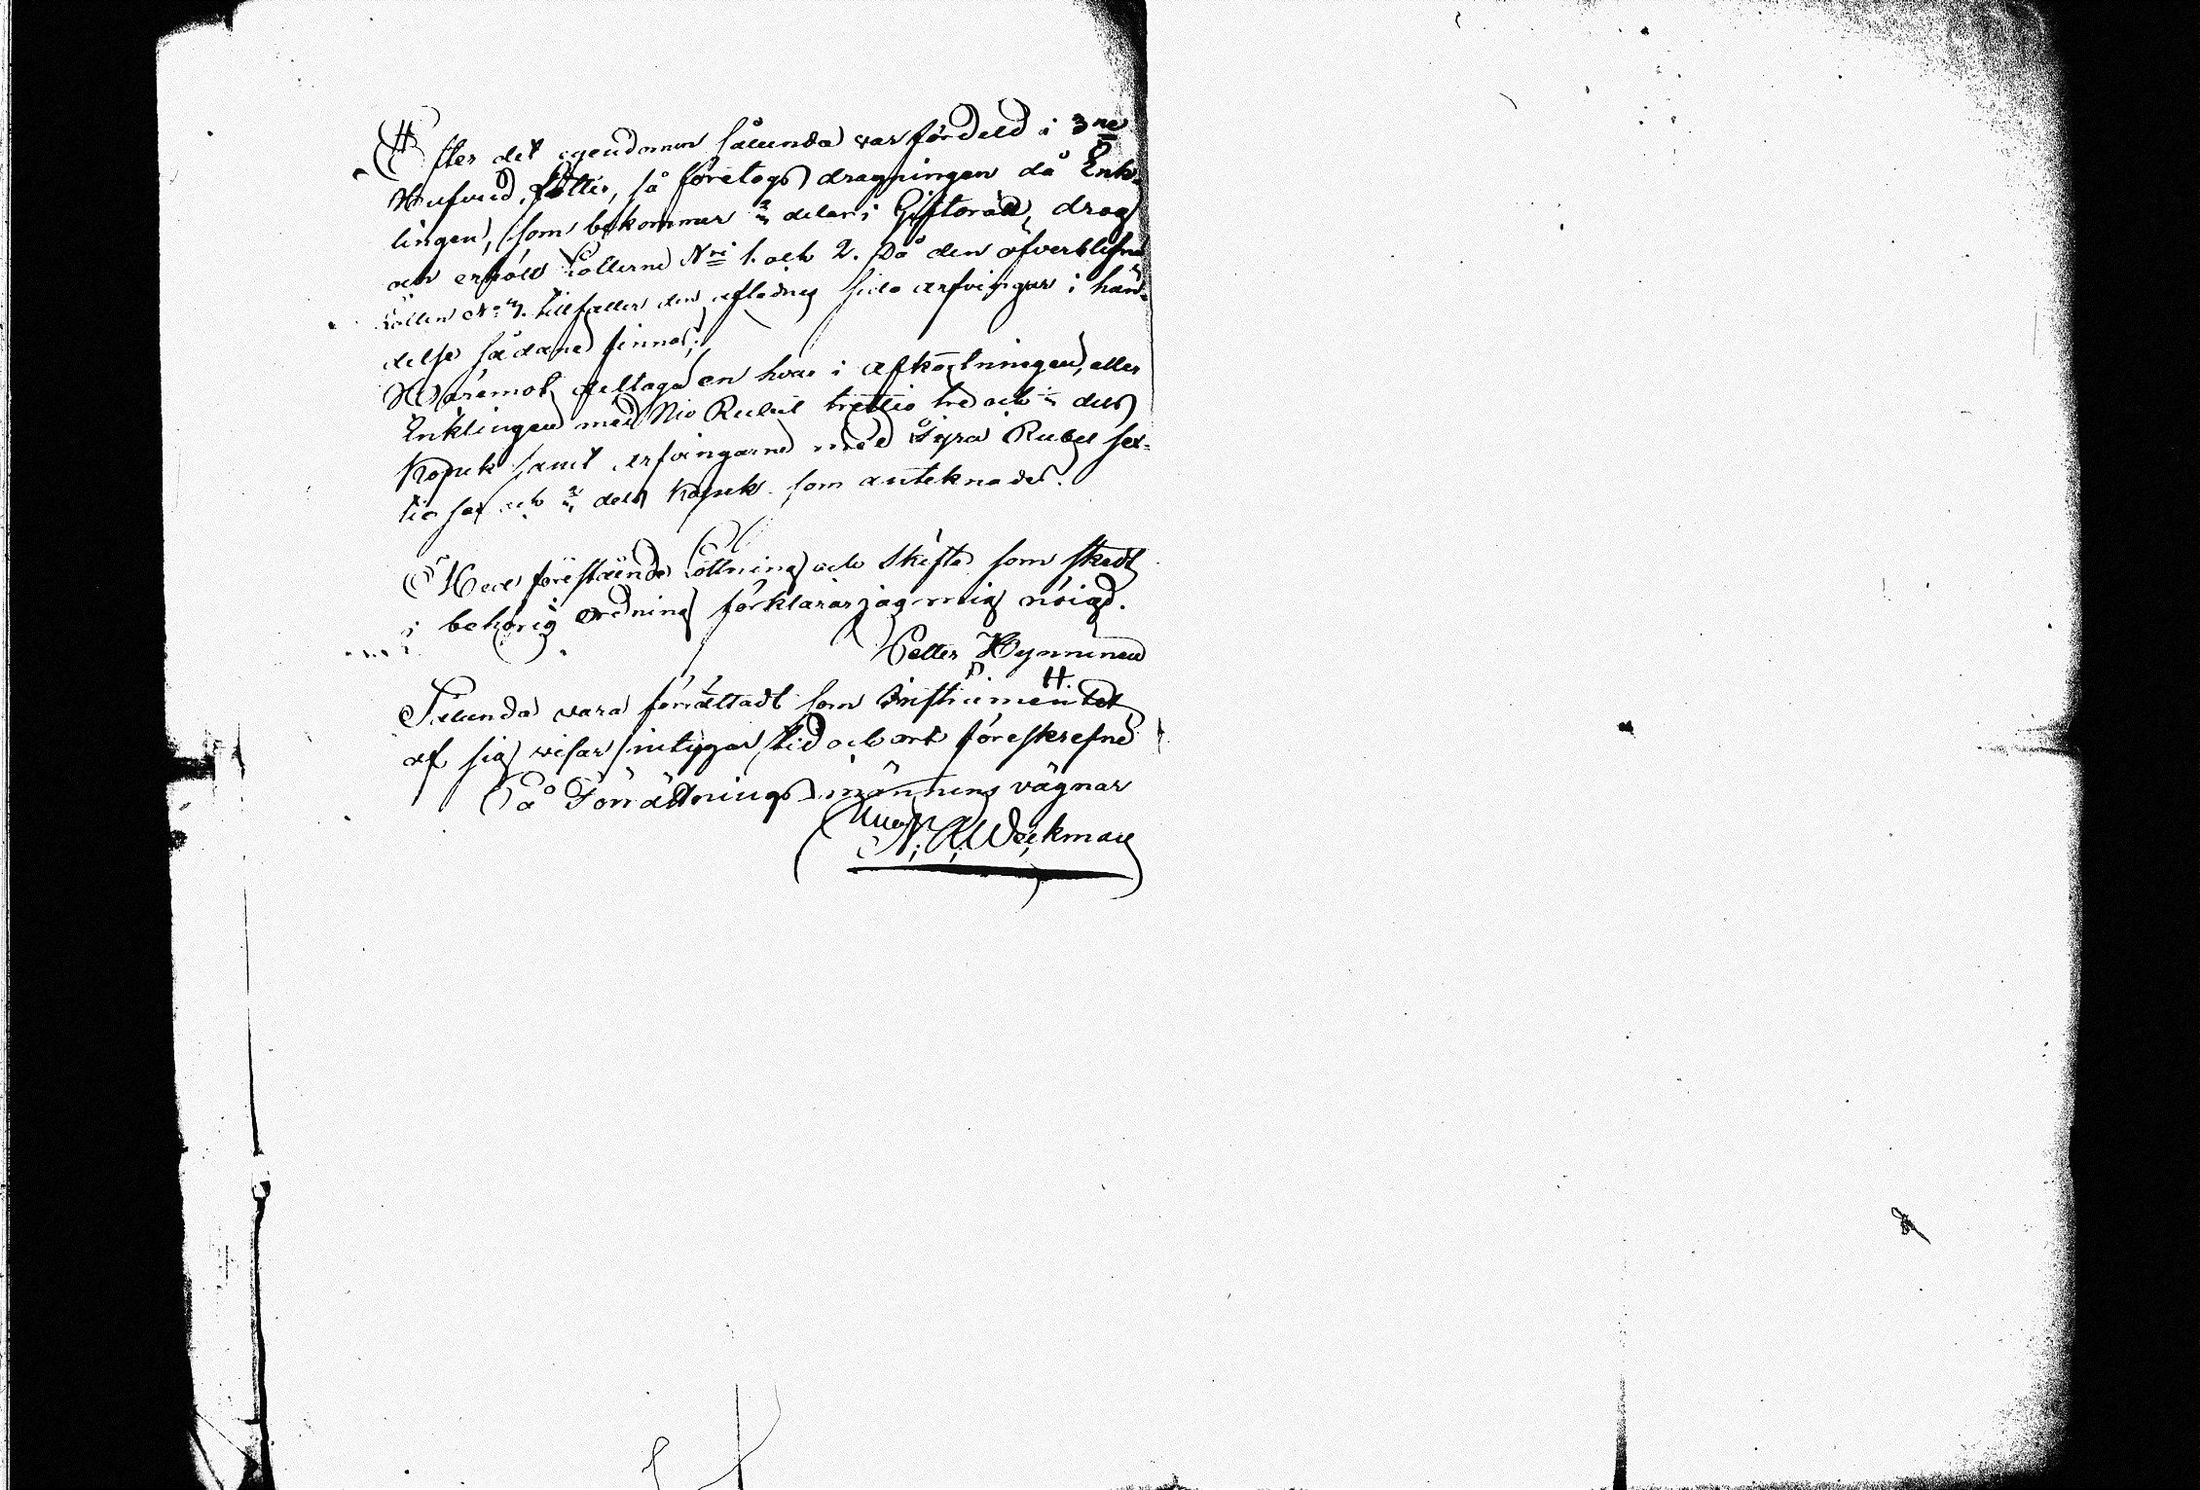 Efter det egendomen sålunda var fördeld i 3ne
Hufvud Lotter, så företogs dragningen då Enk-
lingen, som bekommer 2/3 delar i Giftorätt, drog
och erhöll Lotterne Nri 1. och 2. Då den öfverblefne
Lotten No 3. tillfaller den aflednes sido arfvingar i hän-
delse sådane finnas;
Häremot deltaga en hvar i afkortningen, eller
Enklingen med Nio Rubel trettio tre och 1/3 dels
Kopek samt arfvingarne med Fyra Rubel sex-
tio sex och 2/3 dels Kopek som antecknades.
Med förestående Lottning och Skifte som skedt
i behörig ordning förklarar jag mig nöigd.
Petter Hynninen
H.
Sålunda vara förrättadt som Instrumentet
af sig visar, intygar, tid och ort föreskrefne
På Förrättnings männens vägnar
Weckman